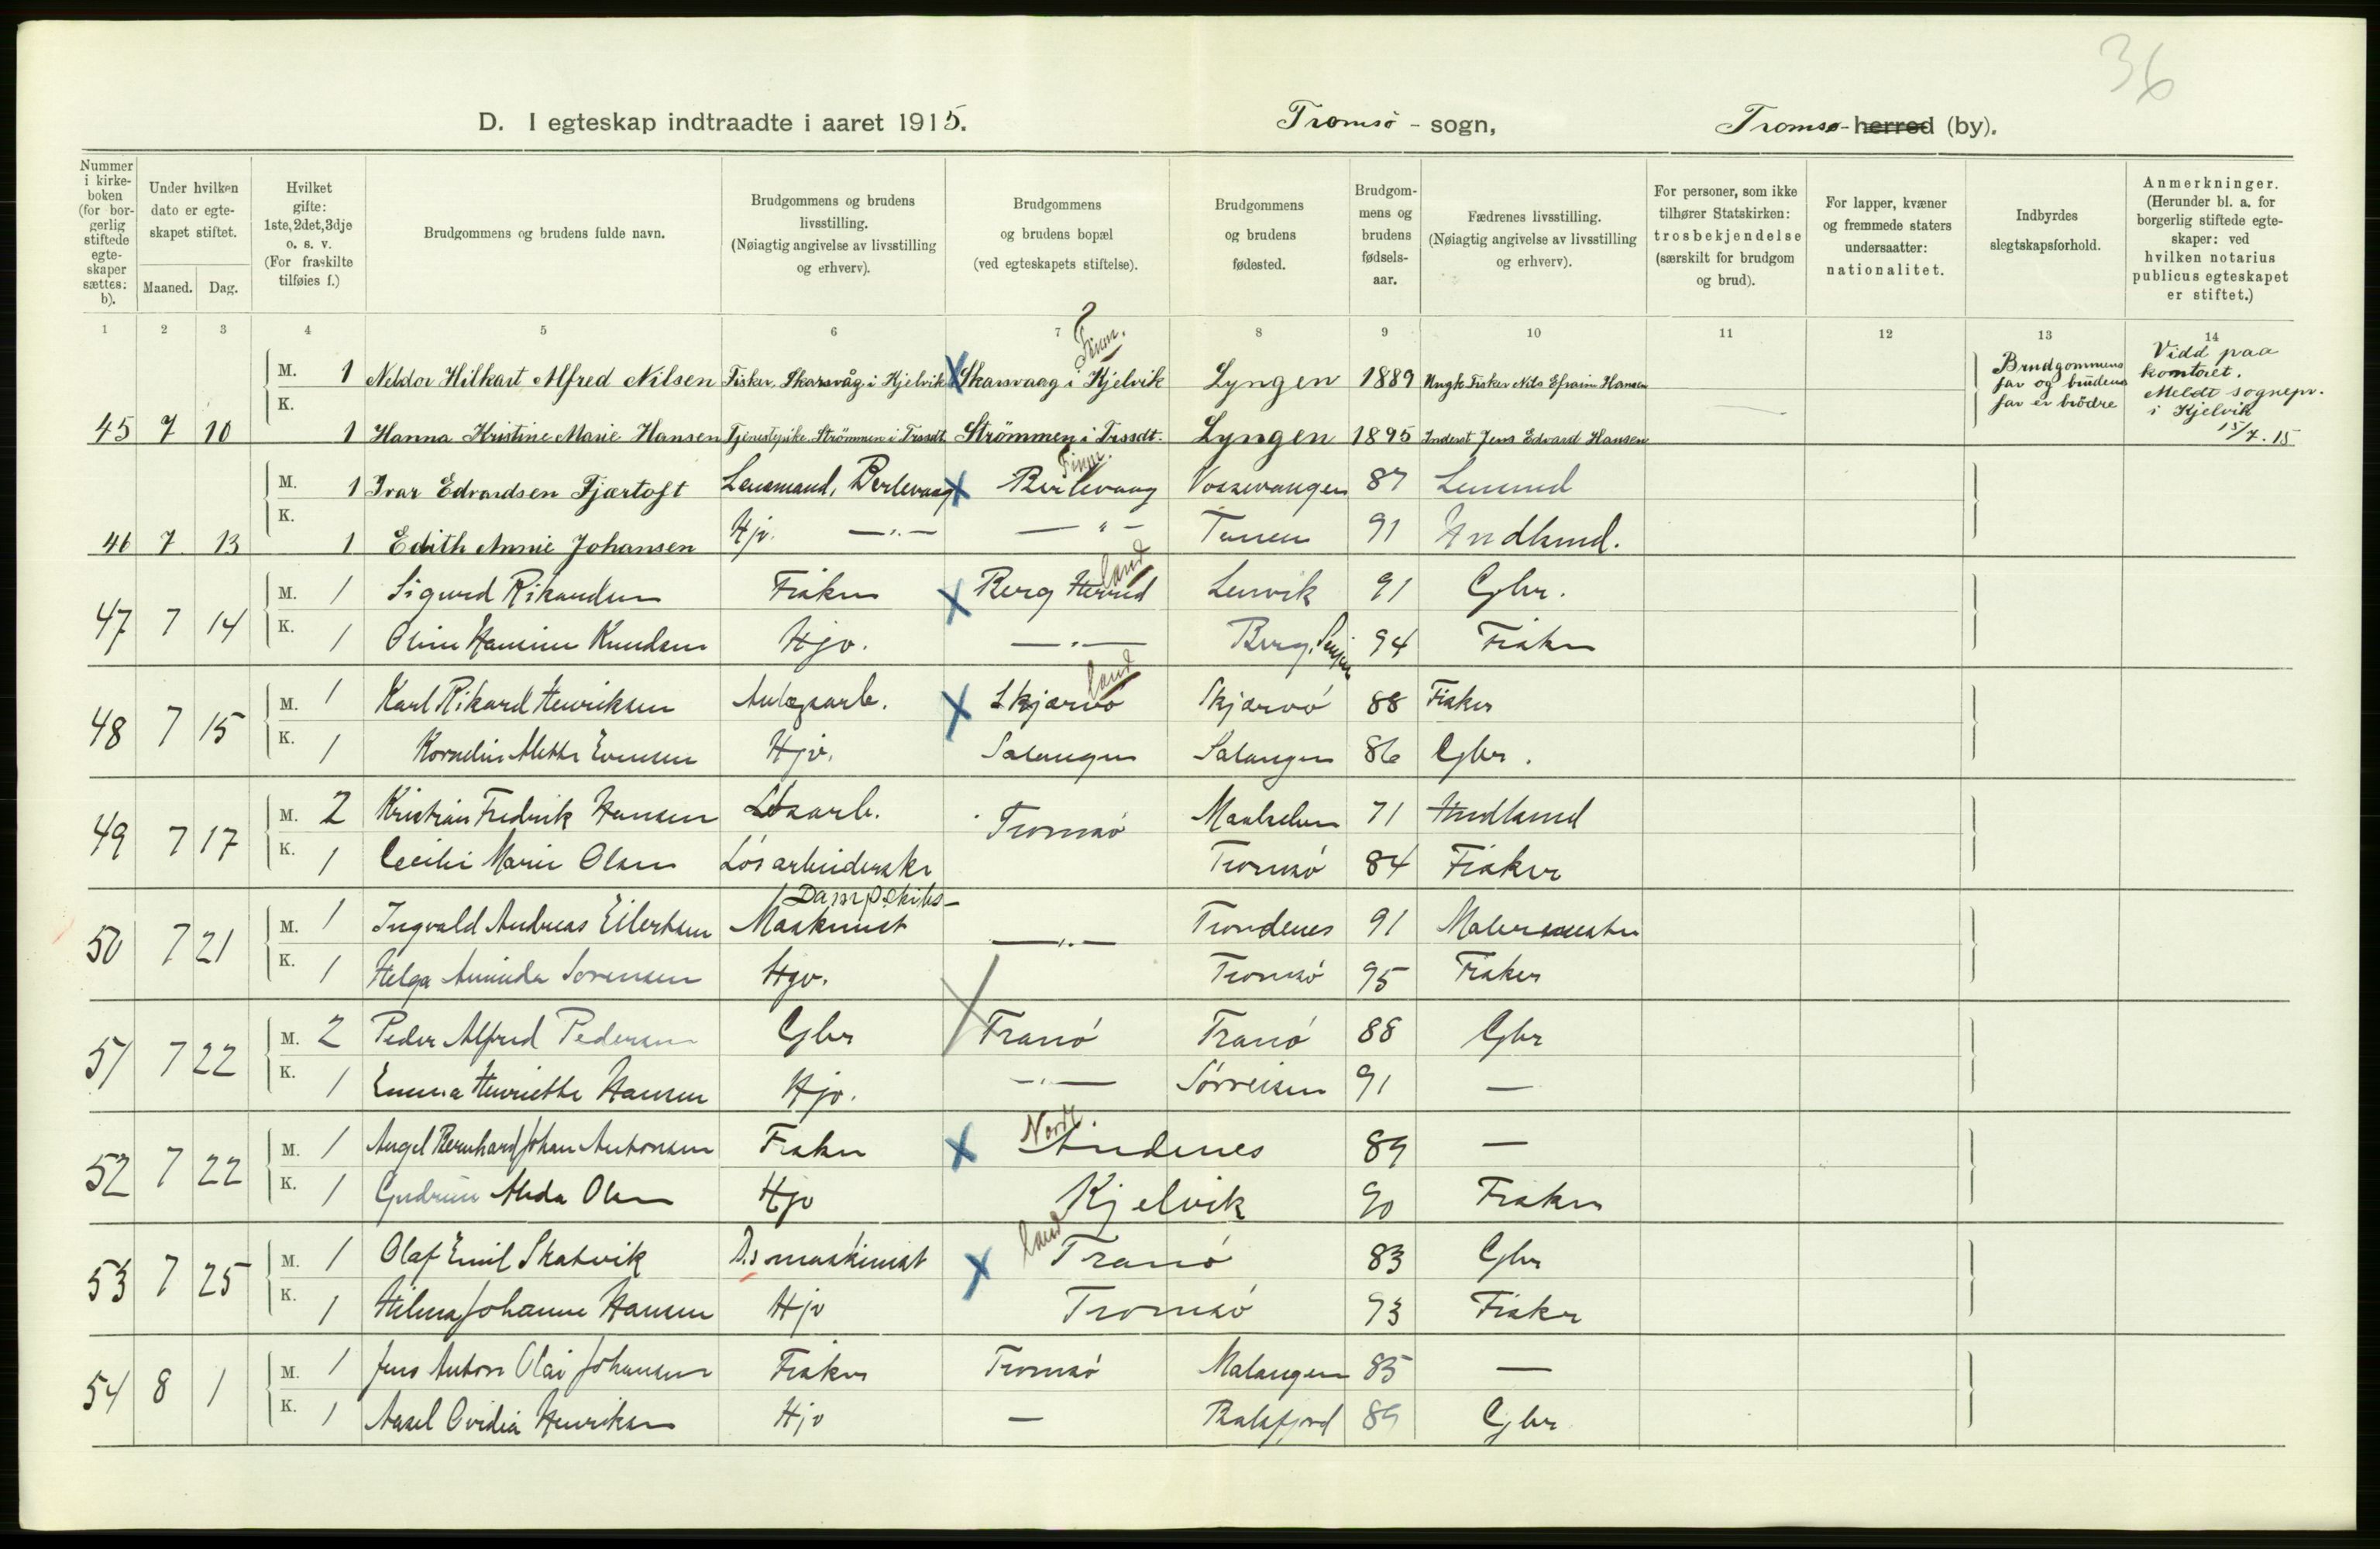 36
D. I egteskap indtraadte i aaret 1915. Tromsö - sogn, Tromsø - herred (by).
Nummer i kirke-boken (for bor-gerlig stiftede egte-skaper sættes: b).
Under hvilken dato er egte-skapet stiftet.
Maaned. Dag.
Hvilket gifte: 1ste, 2det, 3dje o. s. v. (For fraskilte tilføies f.)
Brudgommens og brudens fulde navn.
Brudgommens og brudens livsstilling. (Nøiagtig angivelse av livsstilling og erhverv).
Brudgommens og brudens bopæl (ved egteskapets stiftelse).
Brudgommens og brudens fødested.
Brudgom-mens og brudens fødsels-aar.
Fædrenes livsstilling. (Nøiagtig angivelse av livsstilling og erhverv).
For personer, som ikke tilhører Statskirken: trosbekjendelse (særskilt for brudgom og brud).
For lapper, kvæner og fremmede staters undersaatter: nationalitet.
Indbyrdes slegtskapsforhold.
Anmerkninger. (Herunder bl. a. for borgerlig stiftede egte-skaper: ved hvilken notarius publicus egteskapet er stiftet.)
1 2 3 4 5 6 7 8 9 10 11 12 13 14
Finm.
M. 1 Neldor Hilkart Alfred Nilsen Fisker, Skarsvåg i Kjelvik X Skarsvaag i Kjelvik Lyngen 1889 Ungk. Fisker Nils Efraim Hansen Brudgommens far og brudens far er brödre Vidd paa kontoret. Meldt sognepr. i Kjelvik 15/7. 15
45 7 10 K. 1 Hanna Kristine Marie Hansen Tjenestepike Strömmen i Trssdt. Strömmen i Trssdt. Lyngen 1895 Inderst Jens Edvard Hansen
Finm.
M. 1 Ivar Edvardsen Tjærtoft Lensmand, Berlevaag X Berlevaag Vossevangen 87 Lensmd
46 7 13 K. 1 Edith Annie Johansen Hjv. —"— —"— Tanen 91 Handlsmd.
land
47 7 14 M. 1 Sigurd Rikardsen Fisker X Berg Herred Lenvik 91 Gbr.
K. 1 Oline Hansine Knudsen Hjv. —"— Berg, Senjen 94 Fisker
land
48 7 15 M. 1 Karl Rikard Henriksen Anlegsarb. X Skjærvö Skjærvö 88 Fisker
K. 1 Kornelie Alette Evensen Hjv. Salangen Salangen 86 Gbr.
49 7 17 M. 2 Kristian Fredrik Hansen Lösarb. Tromsö Maalselven 71 Handlsmd
K. 1 Cecilie Marie Olsen Lösarbeiderske Tromsö 84 Fisker
Dampskibs-
50 7 21 M. 1 Ingvald Andreas Eilertsen Maskinist —"— Trondenes 91 Malermester
K. 1 Helga Aminda Sorensen Hjv. Tromsö 95 Fisker
51 7 22 M. 2 Peder Alfred Pedersen Gbr X Tranö Tranö 88 Gbr
K. 1 Emma Henriette Hansen Hjv. —"— Sörreisen 91 —
Nordl.
52 7 22 M. 1 Angel Bernhard Johan Antonsen Fisker X Andenes 89 —
K. 1 Gudrun Alida Olsen Hjv Kjelvik 90 Fisker
land
53 7 25 M. 1 Olaf Emil Skatvik D.s maskinist X Tranö 83 Gbr
K. 1 Hilma Johanne Hansen Hjv Tromsö 93 Fisker
54 8 1 M. 1 Jens Anton Olai Johansen Fisker Tromsö Malangen 85 —
K. 1 Aasel Ovidia Henriksen Hjv — Balsfjord 89 Gbr